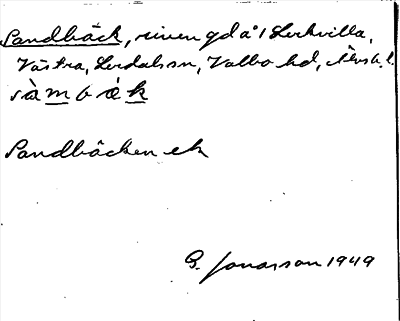 Sandbäck, riven gd å 1 Lerkvilla,
Västra, Lerdals sn, Valbo hd, Älvsb. l.
sàmbäk
Sandbäcken ek
G. Jonasson 1949